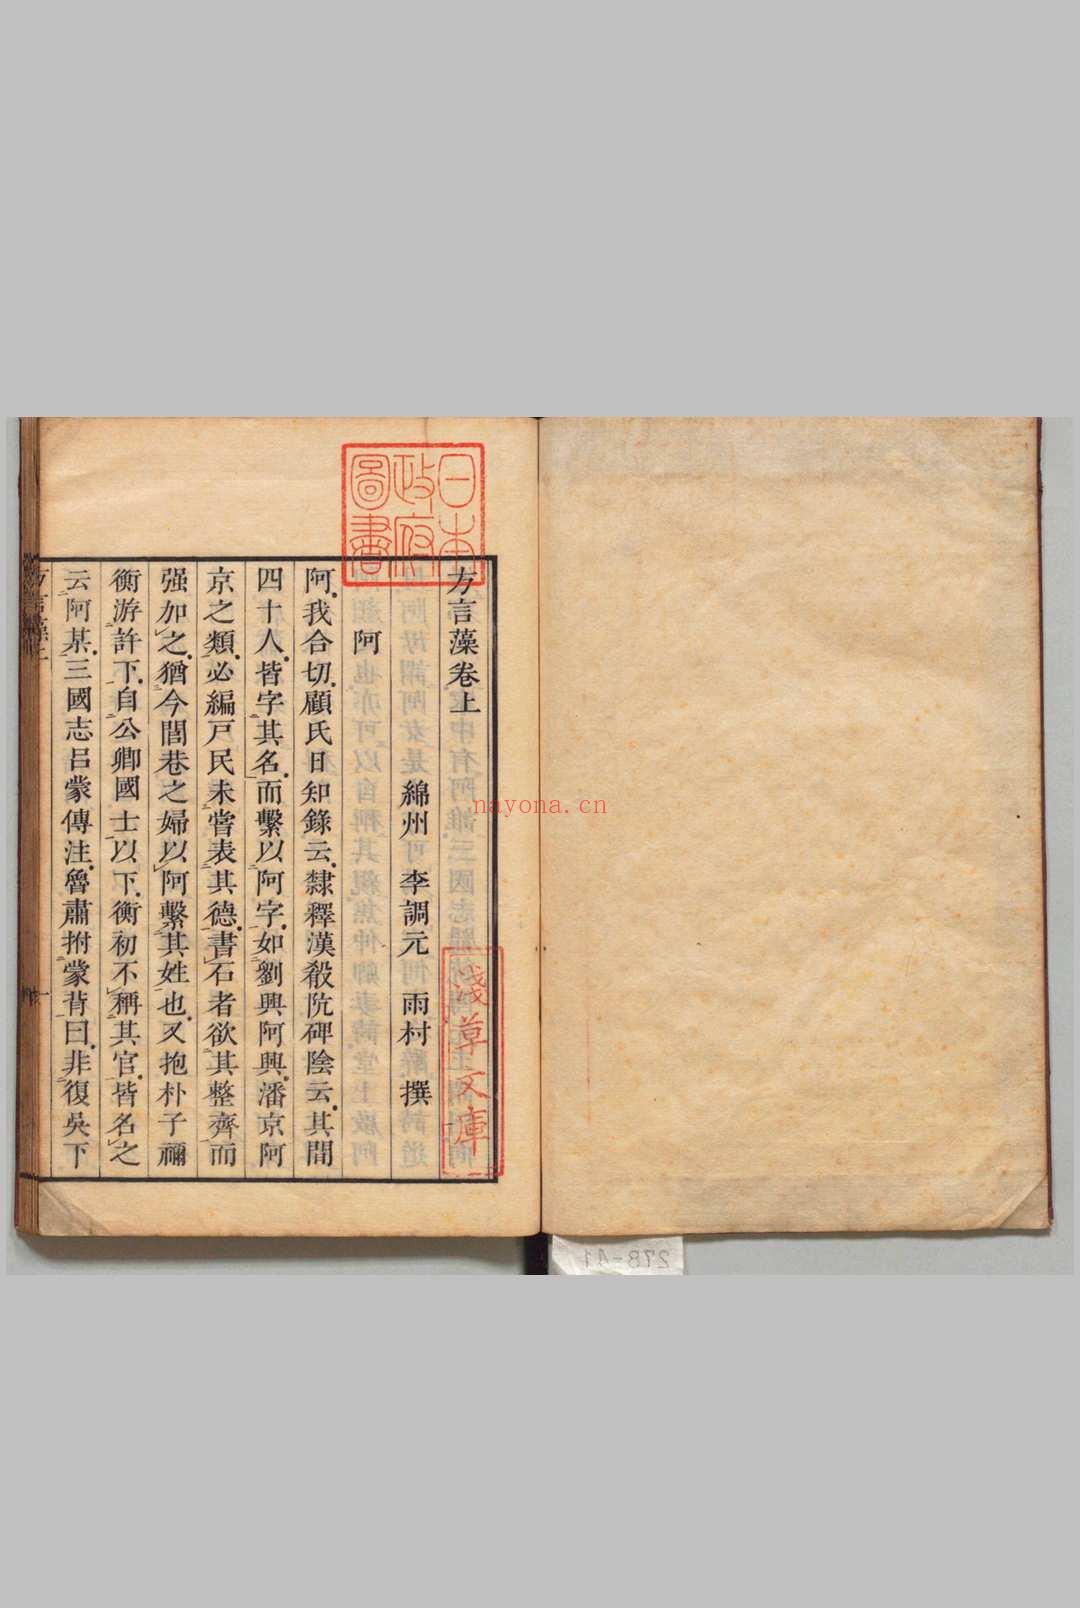 方言藻卷上
綿州 李調元 雨村 撰
阿
阿我合切顧氏日知錄云隸釋漢殽阬碑陰云其間
四十人皆字其名而繫以阿字如劉興阿興潘京阿
京之類必編戸民未嘗表其德書石者欲其整齊而
强加之猶今閭巷之婦以阿繫其姓也又抱朴子禰
衡游許下自公卿國士以下衡初不稱其官皆名之
云阿某三國志吕蒙傳注魯肅拊蒙背曰非復吳下
日本
政府
圖書
淺草文庫
nayona.cn
278-41